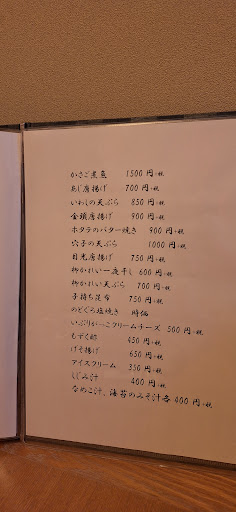 かさご煮魚 1500 円+税
あじ唐揚げ 700 円+税
いわしの天ぷら 850 円+税
金鎖唐揚げ 900 円+税
ホタテのバター焼き 900 円+税
穴子の天ぷら 1000 円+税
目光唐揚げ 750 円+税
柳かれい一夜干し 600 円+税
柳かれい天ぷら 700 円+税
子持ち昆布 750 円+税
のどぐろ塩焼き 時価
いぶりがっこクリームチーズ 500 円+税
もずく酢 450 円+税
げそ揚げ 650 円+税
アイスクリーム 350 円+税
しじみ汁 400 円+税
なめこ汁、海苔のみそ汁各 400 円+税